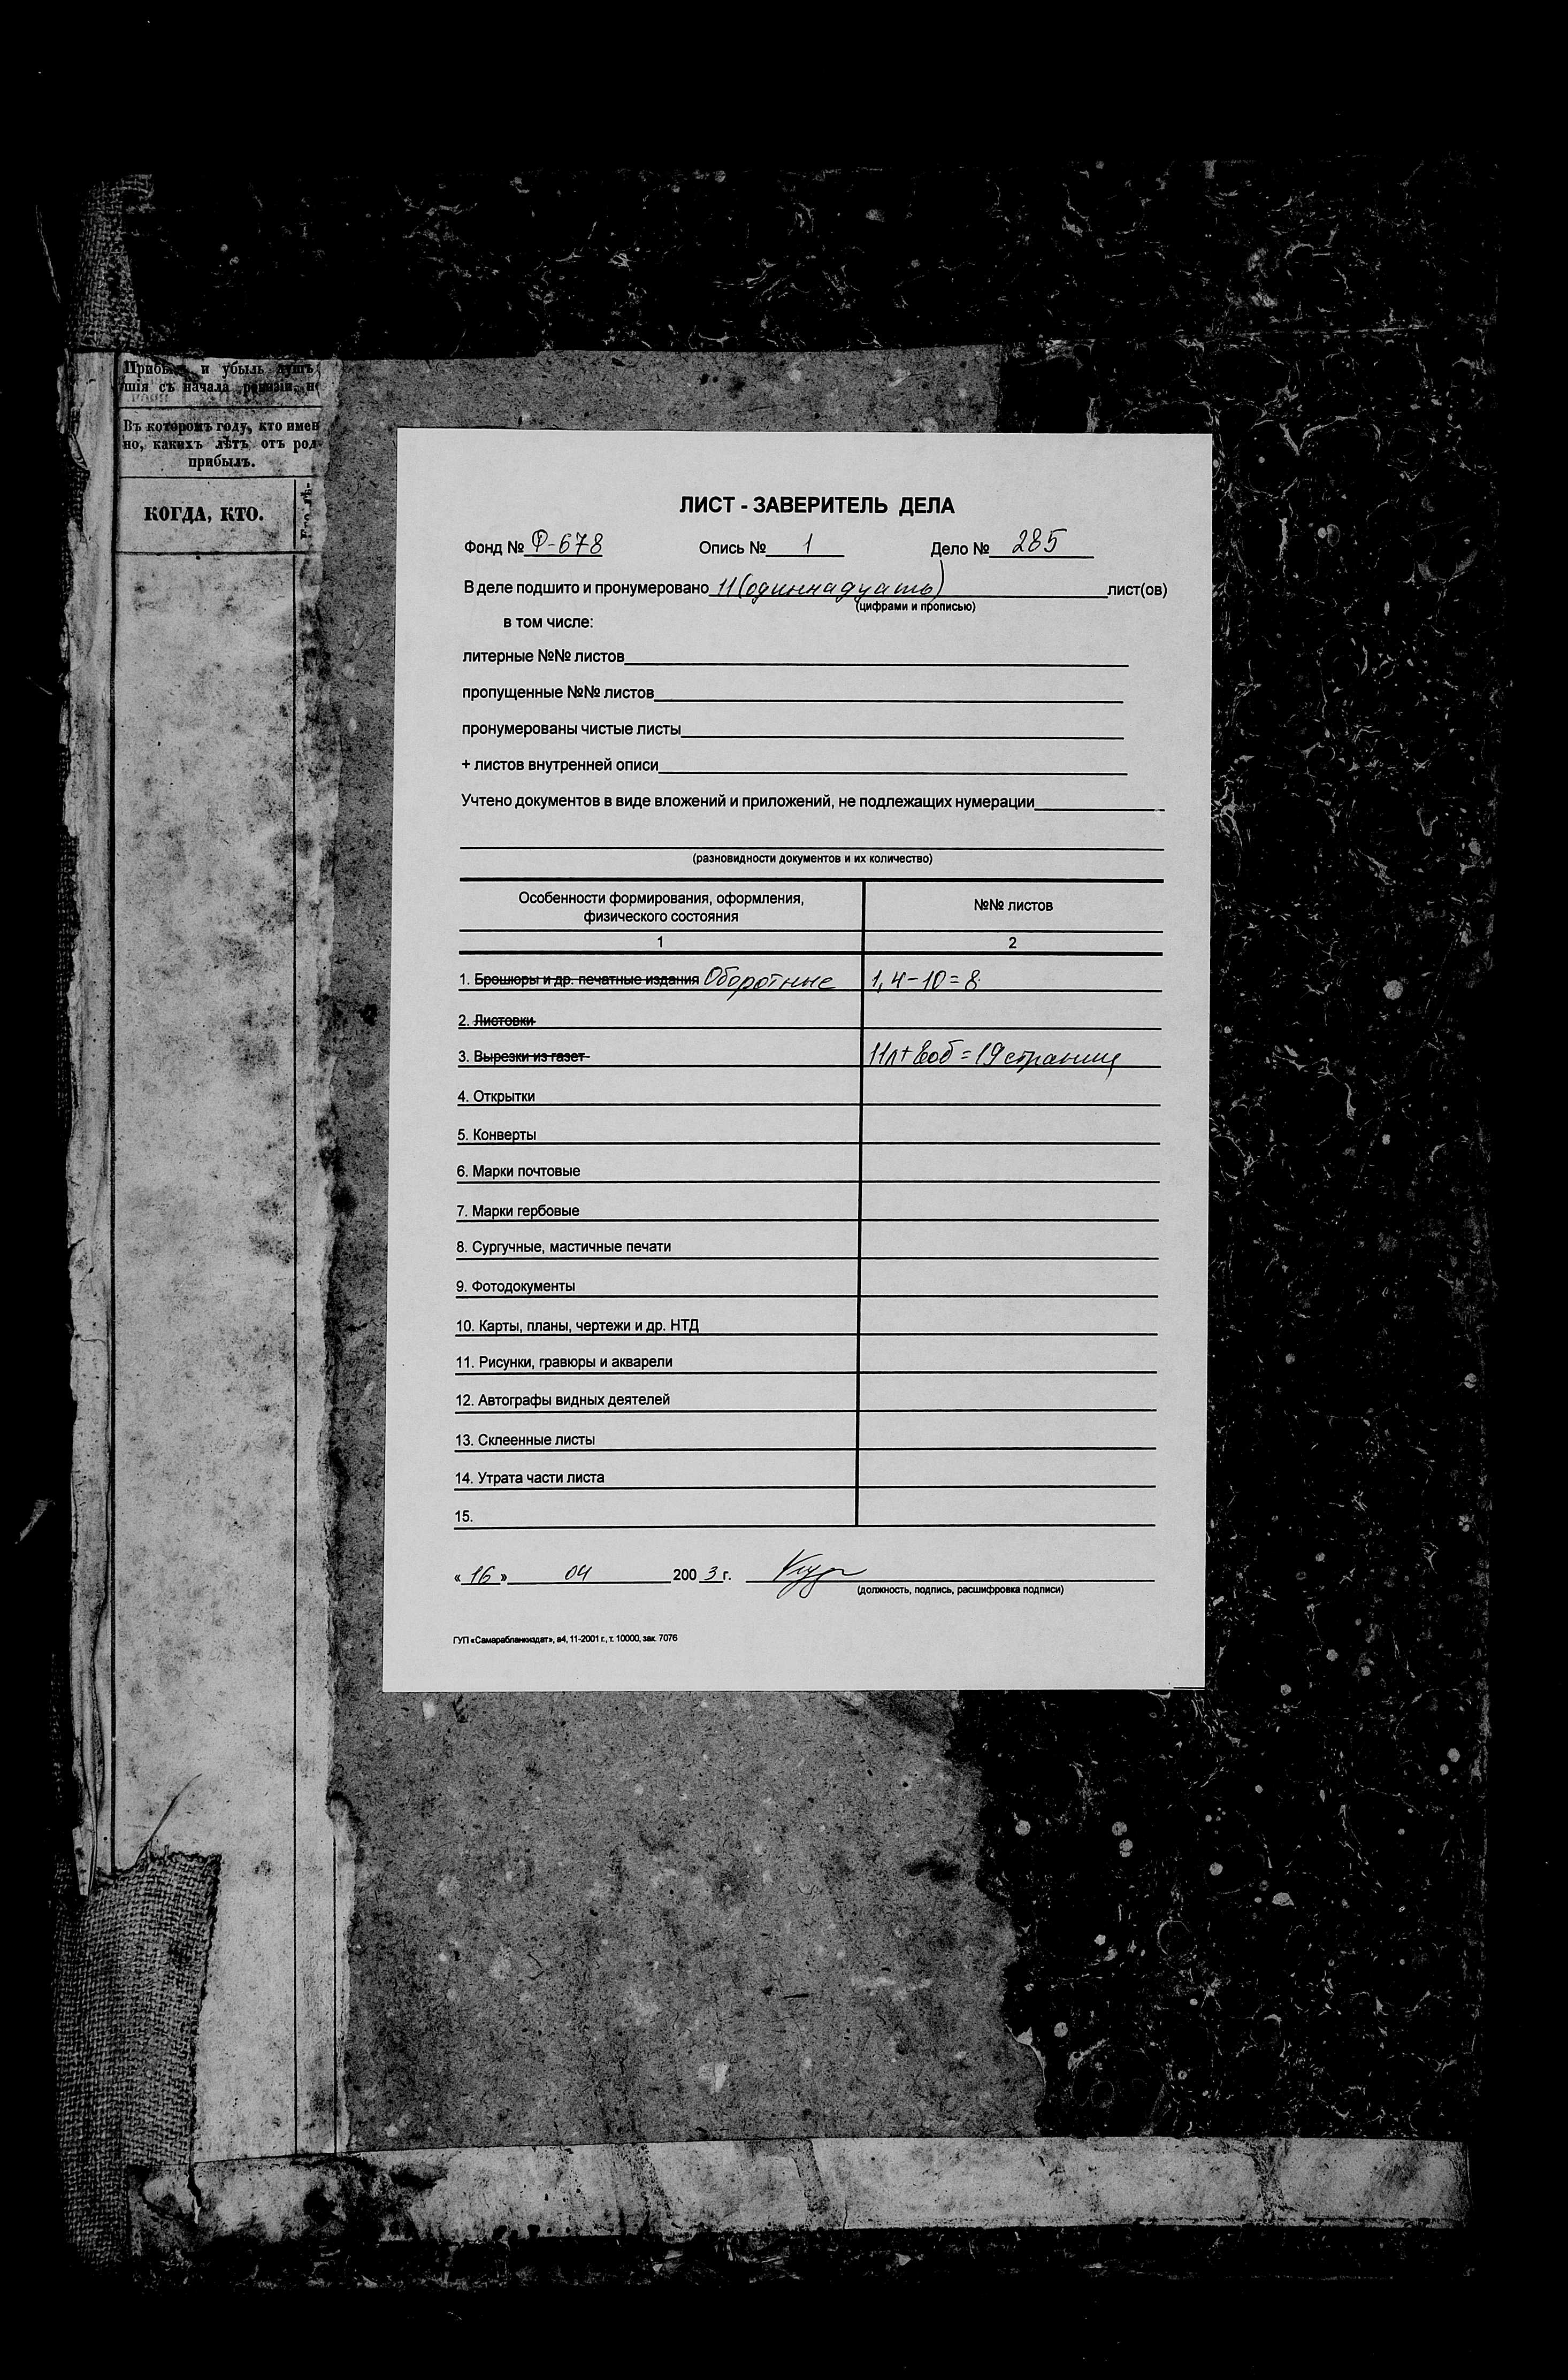 Прибыль и убыль душъ
шія съ начала ревизіи, и
Въ которомъ году, кто имен
но, какихъ лѣтъ отъ род
прибылъ.
КОГДА, КТО.
ЛИСТ - ЗАВЕРИТЕЛЬ ДЕЛА
Фонд № Ф-678 Опись № 1 Дело № 285
В деле подшито и пронумеровано 11 (одиннадцать) лист(ов)
(цифрами и прописью)
в том числе:
литерные №№ листов
пропущенные №№ листов
пронумерованы чистые листы
+ листов внутренней описи
Учтено документов в виде вложений и приложений, не подлежащих нумерации
(разновидности документов и их количество)
Особенности формирования, оформления,
физического состояния
№№ листов
1 2
1. Брошюры и др. печатные издания Оборотные 1, 4-10=8
2. Листовки
3. Вырезки из газет 11л+8об=19 страниц
4. Открытки
5. Конверты
6. Марки почтовые
7. Марки гербовые
8. Сургучные, мастичные печати
9. Фотодокументы
10. Карты, планы, чертежи и др. НТД
11. Рисунки, гравюры и акварели
12. Автографы видных деятелей
13. Склеенные листы
14. Утрата части листа
15.
« 16 » 04 200 3 г.
(должность, подпись, расшифровка подписи)
ГУП «Самарабланкиздат», а4, 11-2001 г., т. 10000, зак. 7076